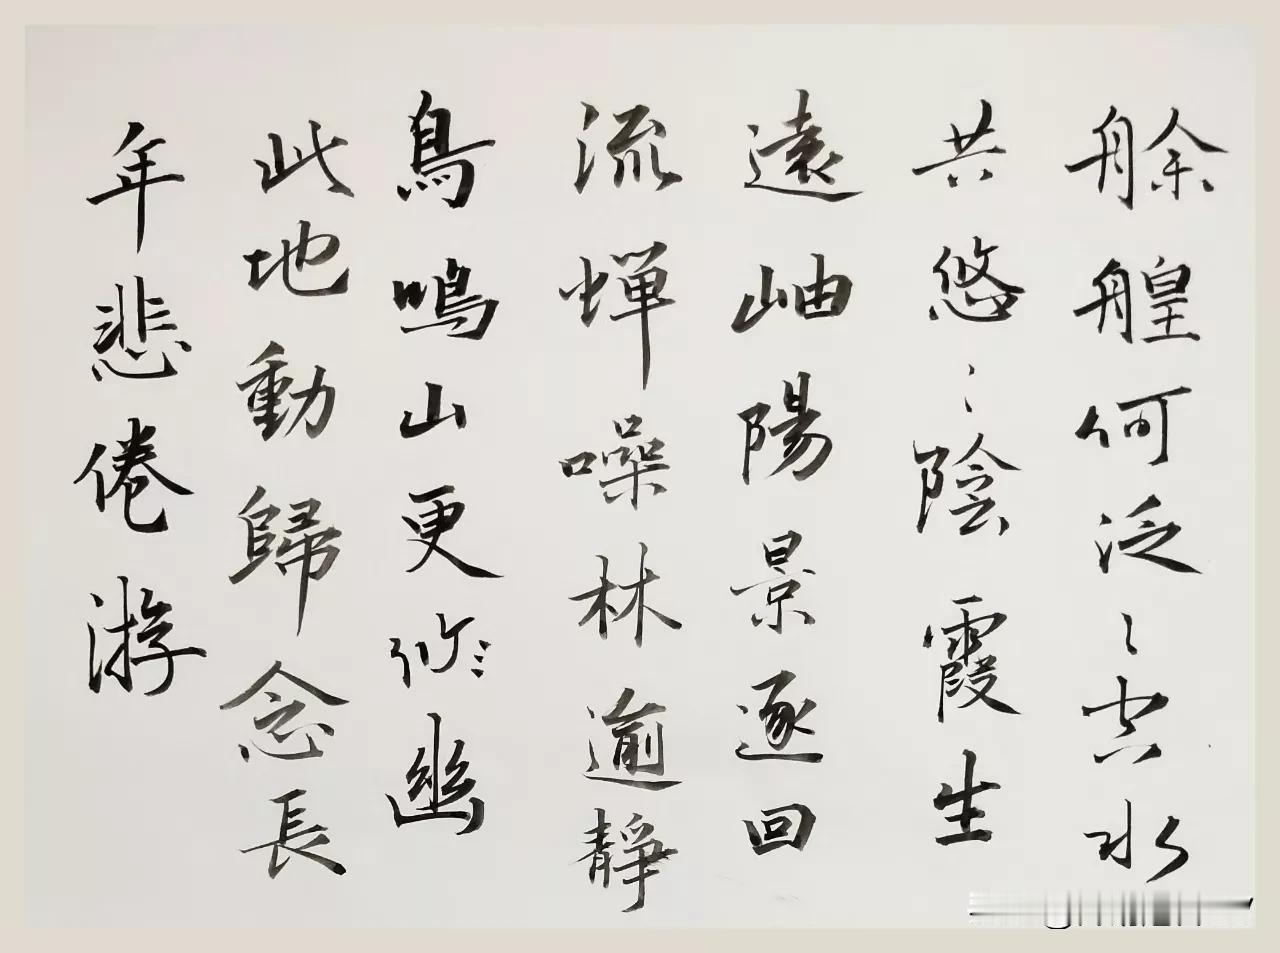 艅艎何泛〻空水
共悠〻陰霞生
遠岫陽景逐回
流蝉噪林逾靜
鳥鳴山更幽
此地動歸念長
年悲倦游